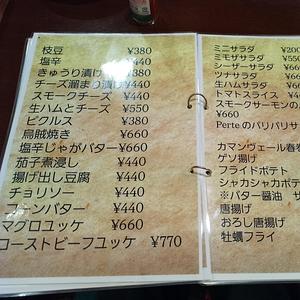 枝豆 ¥380
塩辛 ¥440
きゅうり漬け ¥380
チーズ溜まり漬け ¥440
スモークチーズ ¥440
生ハムとチーズ ¥550
ピクルス ¥380
烏賊焼き ¥660
塩辛じゃがバター ¥660
茄子煮浸し ¥440
揚げ出し豆腐 ¥440
チョリソー ¥440
コーンバター ¥440
マグロユッケ ¥660
ローストビーフユッケ ¥770
ミニサラダ ¥200
ミモザサラダ ¥550
シーザーサラダ ¥660
ツナサラダ ¥440
生ハムサラダ
トマトスライス ¥440
スモークサーモンの
¥660
Perteのバリバリサ
カマンヴェール春巻
ゲソ揚げ
フライドポテト
シャカシャカポテ
※バター醤油
唐揚げ
おろし唐揚げ
牡蠣フライ